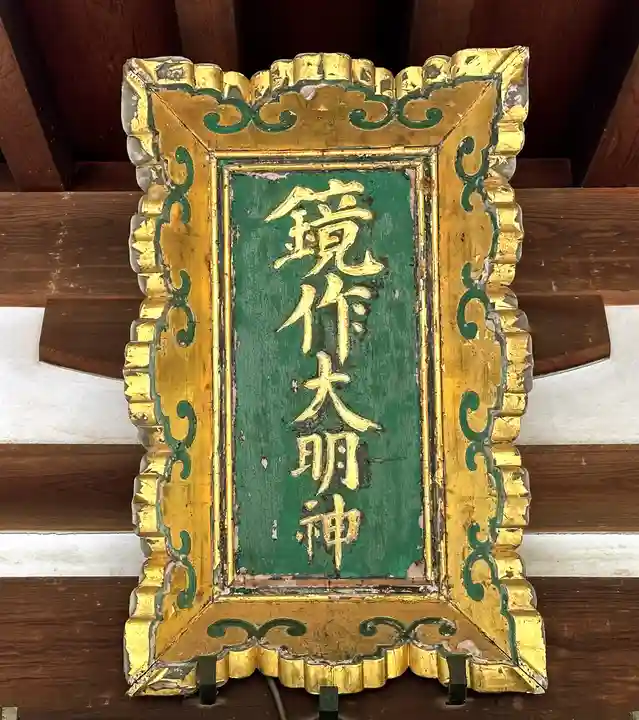 鏡作大明神